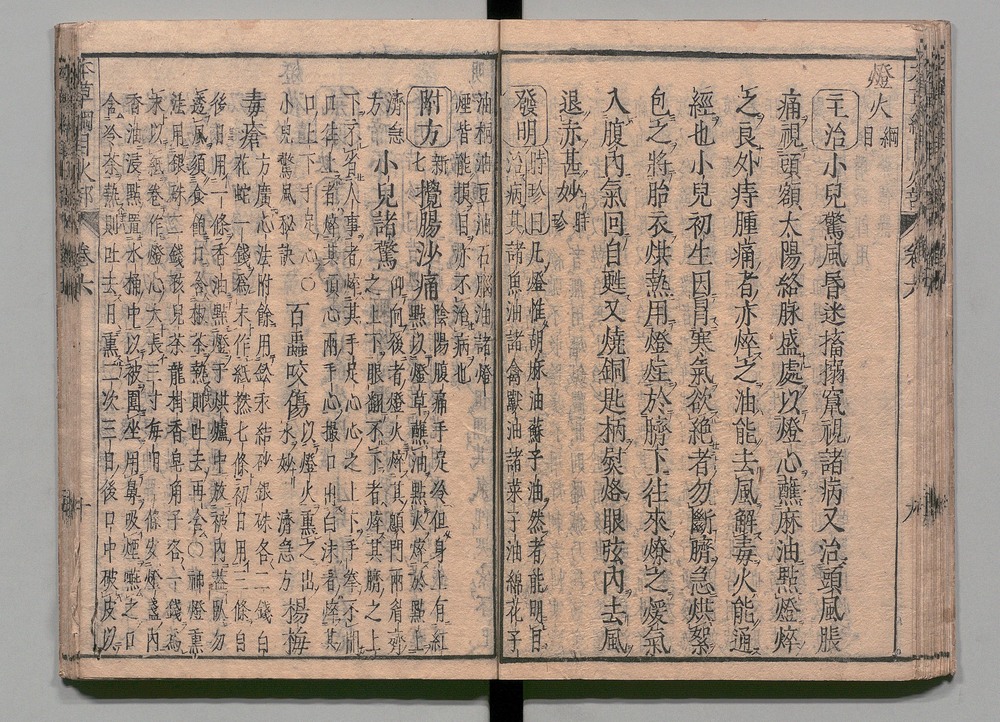 燈火綱目
主治小兒驚風昏迷搐搦竄視諸病又治頭風脹
痛視頭額太陽絡脉盛處以燈心蘸麻油點燈焠
之良外痔腫痛者亦焠之油能去風解毒火能通
經也小兒初生因冒寒氣欲絕者勿斷臍急烘絮
包之將胎衣烘熱用燈炷於臍下往來燎之煖氣
入腹內氣回自甦又燒銅匙柄熨烙眼弦內去風
退赤甚妙時珍
發明時珍曰凡燈惟胡麻油蘇子油然者能明目
治病其諸魚油諸禽獸油諸菜子油綿花子
油桐油豆油石腦油諸燈
煙皆能損目亦不治病也
附方新七攪腸沙痛陰陽腹痛手足冷但身上有紅
點以燈草蘸油點火焠於點上
濟急方小兒諸驚仰向後者燈火焠其顖門兩眉齊
之上下眼翻不下者焠其臍之上
下不省人事者焠其手足心心之上下手拳不開
口往上者焠其頂心兩手心撮口出白沫者焠其
口上下手足心〇
小兒驚風秘訣百蟲咬傷以燈火熏之出水妙濟急方楊梅
毒瘡方廣心法附餘用
花蛇一錢
末作紙撚七條初日用三條白
後日用一條香油點燈于烘爐中放被內蓋臥勿
透風須食飽口含椒茶熱則吐去再含〇神燈熏
法用銀硃二錢孩兒茶龍掛香皂角子各一錢為
末以紙卷作燈心大長三寸每用一條安燈盞內
香油浸點置水桶中以被圍坐用鼻吸煙嚥之口
含冷茶熱則吐去日熏二次三日後口中破皮以
本草綱目火部
卷六
九
十